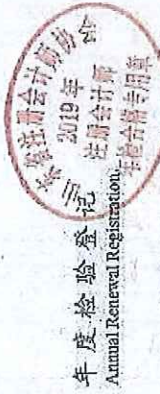 年度检验登记
Annual Renewal Registration
江苏省注册会计师协会
2019年
注册会计师
年检合格专用章